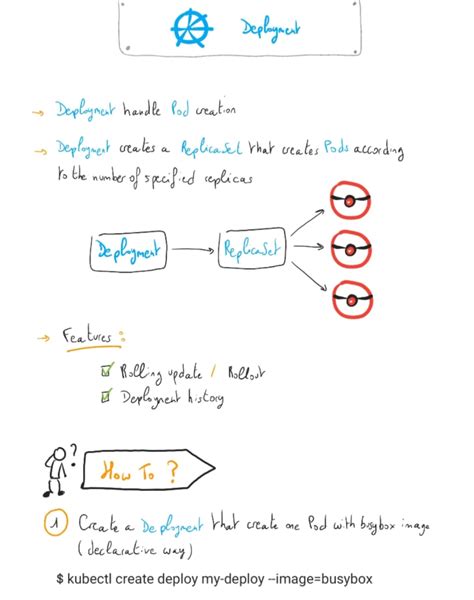 Deployment
→ Deployment handle Pod creation
→ Deployment creates a ReplicaSet that creates Pods according
to the number of specified replicas
Deployment
ReplicaSet
→ Features :
Rolling update / Rollout
Deployment history
?
How To ?
1 Create a Deployment that create one Pod with busybox image
(declarative way)
$ kubectl create deploy my-deploy --image=busybox